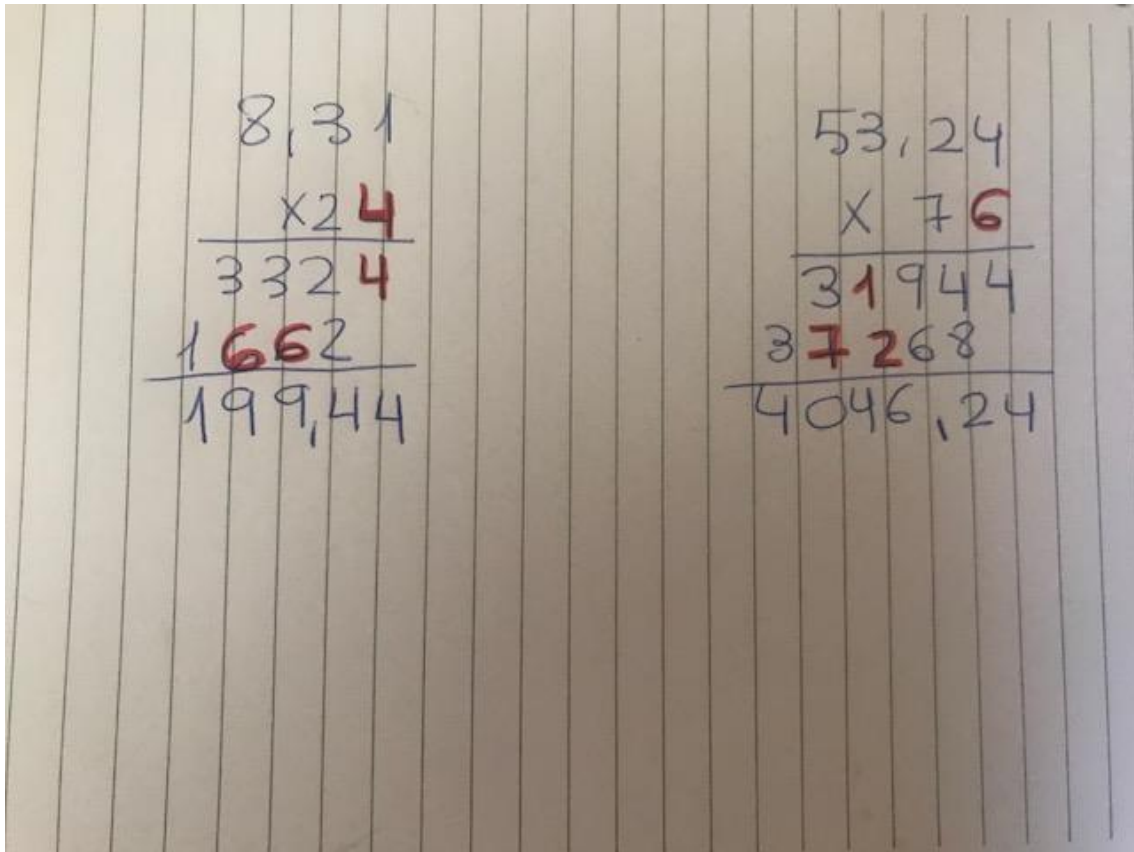 8,31
x24
3324
1662
199,44
53,24
x 76
31944
37268
4046,24